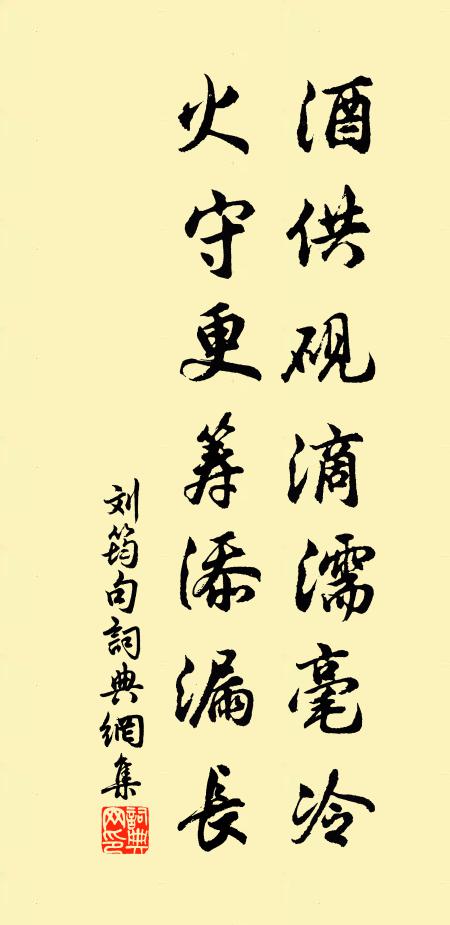 酒供砚滴濡毫冷
火守更筹添漏長
刘筠句詞典網集
詞典网印